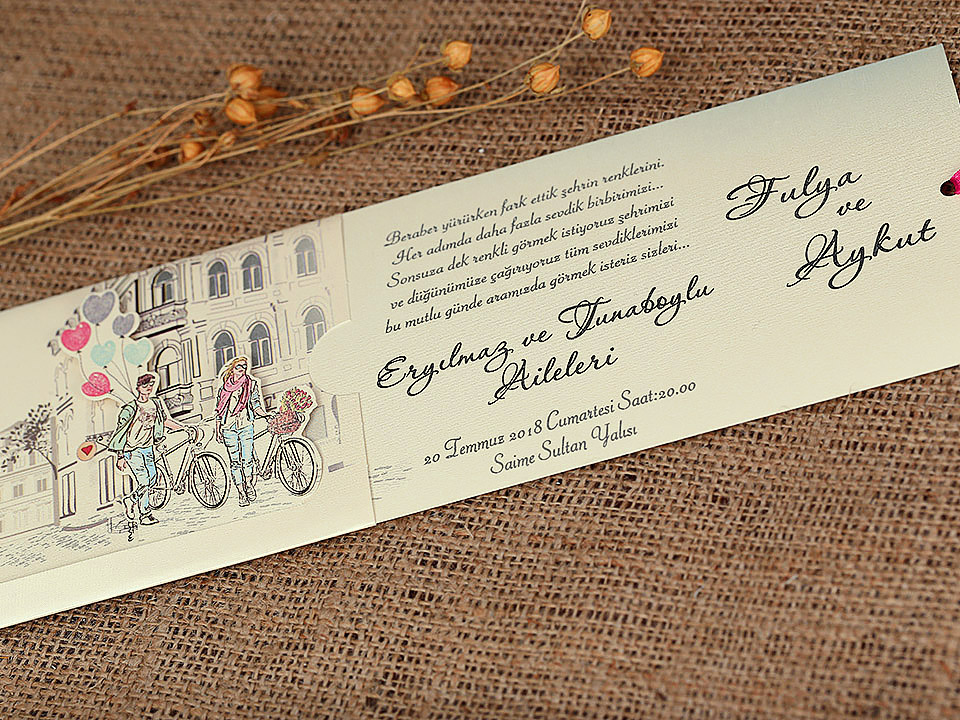 Beraber yürürken fark ettik şehrin renklerini.
Her adımda daha fazla sevdik birbirimizi...
Sonsuza dek renkli görmek istiyoruz şehrimizi
ve düğünümüze çağırıyoruz tüm sevdiklerimizi
bu mutlu günde aramızda görmek isteriz sizleri...
Eryılmaz ve Tunaboylu
Aileleri
20 Temmuz 2018 Cumartesi Saat:20.00
Saime Sultan Yalısı
Fulya
ve
Aykut